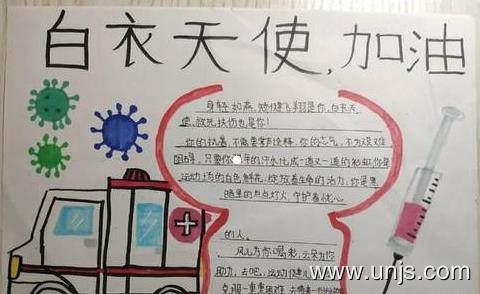 白衣天使,加油
身轻如燕,矫健飞翔是你,白衣天
使,救死扶伤也是你!
你的执着,不需要诠释,你的志气,不为艰难
阻碍,只要你的汗水化成一道又一道的彩虹,你是
运动场的白色鲜花,绽放着生命的活力,你是黑
暗里的点点灯火,守护着忧心
的人。
风儿为你喝彩,云朵为你
助力,去吧,运动健儿
一重重困难,去
www.unjs.com